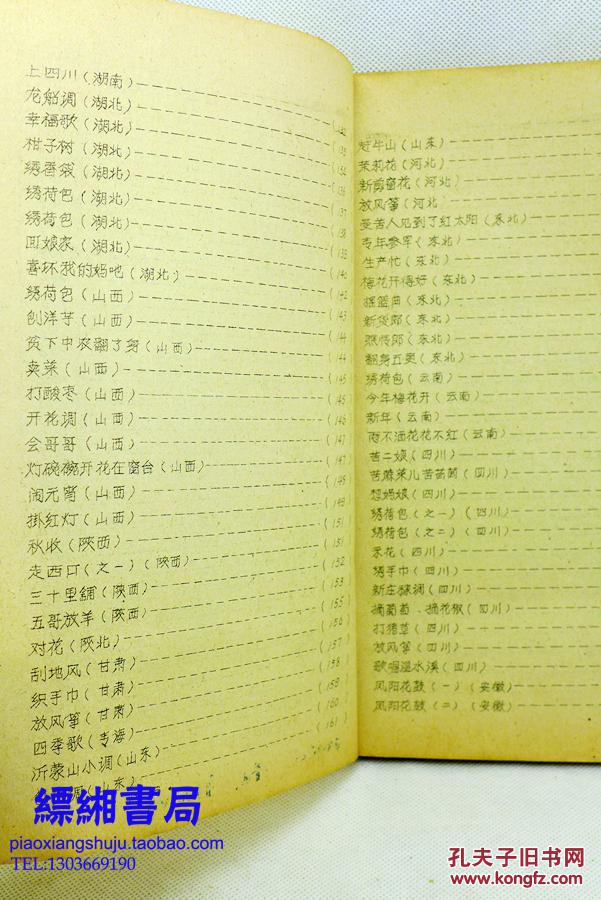 上四川(湖南)
龙船调(湖北)(132
幸福歌(湖北)(133
柑子树(湖北)(134
绣香袋(湖北)(136
绣荷包(湖北)(137
绣荷包(湖北)(138
回娘家(湖北)(139
喜坏我的妈吔(湖北)(140
绣荷包(山西)(142
刨洋芋(山西)(143
贫下中农翻了身(山西)(144
卖菜(山西)(144
打酸枣(山西)(145
开花调(山西)(145
会哥哥(山西)(146
灯碗碗开花在窗台(山西)(147
闹元宵(山西)(148
掛红灯(山西)(149
秋收(陕西)(151
走西口(之一)(陕西)(151
三十里铺(陕西)(152
五哥放羊(陕西)(153
对花(陕北)(155
刮地风(甘肃)(156
织手巾(甘肃)(157
放风筝(甘肃)(158
四季歌(青海)(159
沂蒙山小调(山东)(160
(山东)(161
赶牛山(山东)
茉莉花(河北)
新剪窗花(河北)
放风筝(河北
受苦人见到了红太阳(东北)
专年参军(东北)
生产忙(东北)
梅花开得好(东北)
摇篮曲(东北)
新货郎(东北)
翻身五更(东北)
绣荷包(云南)
今年梅花开(云南)
新年(云南)
雨不洒花花不红(云南)
苦二娘(四川)
苦麻菜儿苦茵茵(四川)
想妈娘(四川)
绣荷包(之一)(四川)
绣荷包(之二)(四川)
采花(四川)
绣手巾(四川)
新庄稼调(四川)
摘葡萄、摘花椒(四川)
打猪草(四川)
放风筝(四川)
歌唱混水溪(四川)
凤阳花鼓(一)(安徽)
凤阳花鼓(二)(安徽)
縹緗書局
piaoxiangshuju.taobao.com
TEL:1303669190
孔夫子旧书网
www.kongfz.com